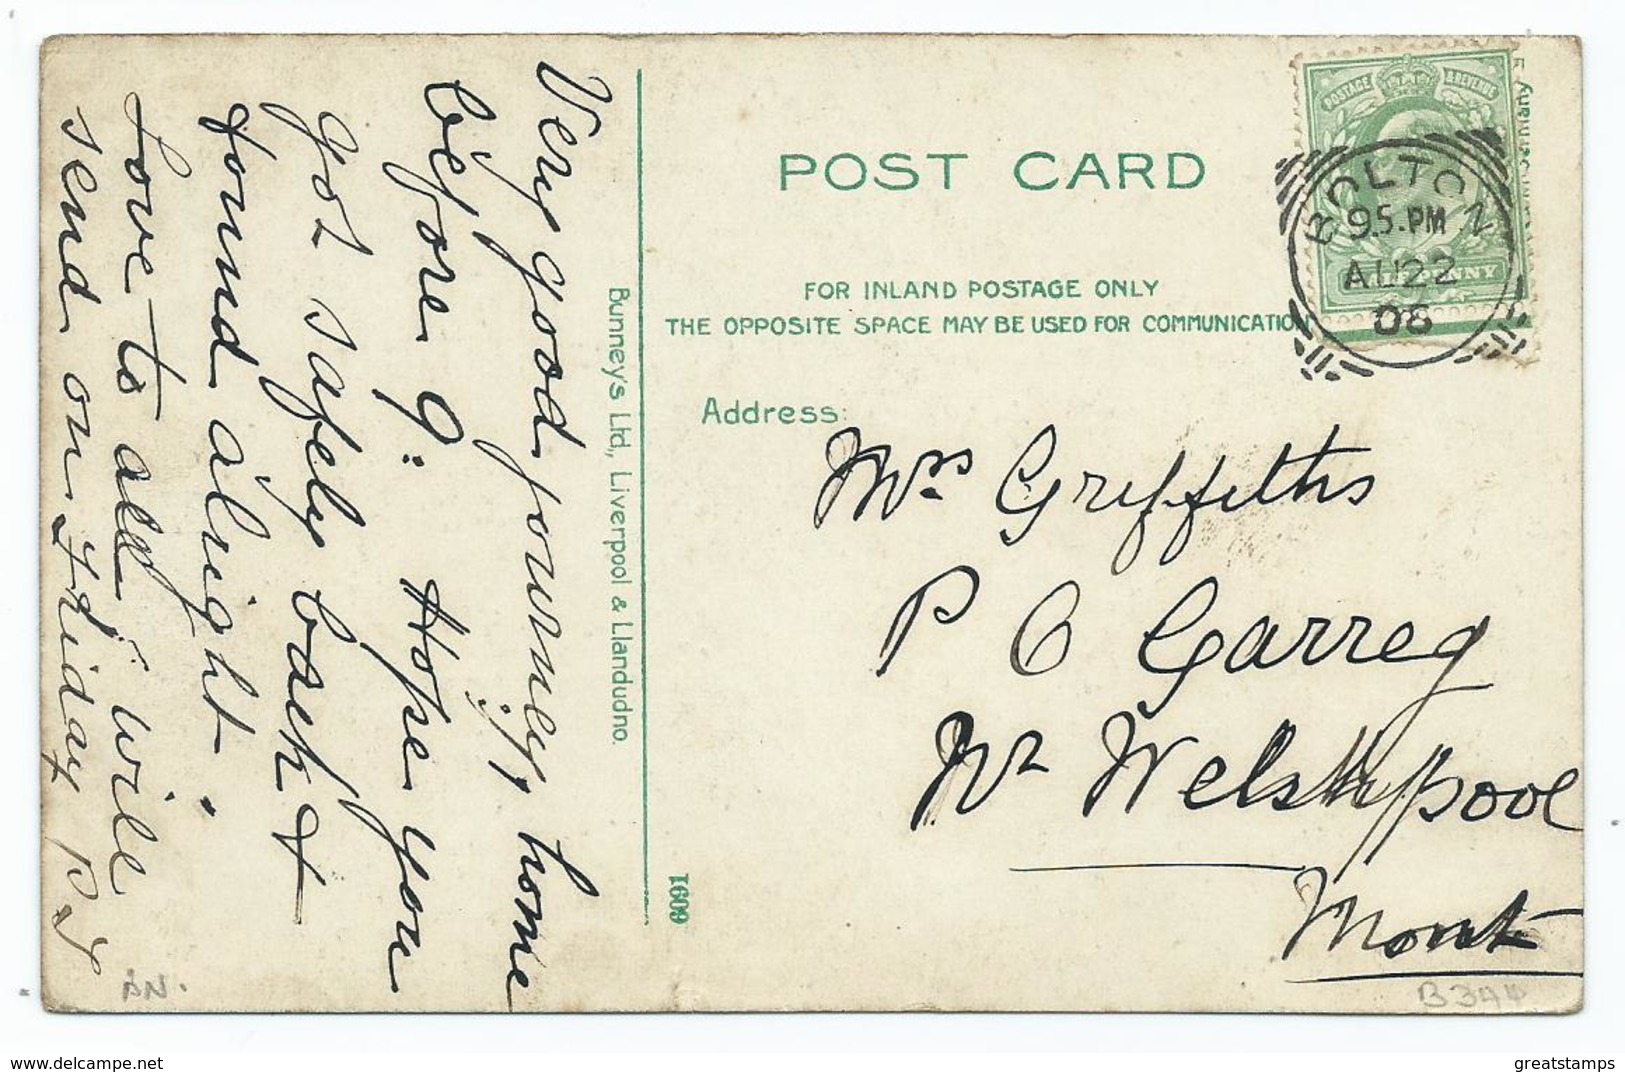 Very good journey, home
before 9. Hope you
got safely back &
found alright.
Love to all will
send on Friday P. J
Bunney's Ltd., Liverpool & Llandudno.
1609
POST CARD
FOR INLAND POSTAGE ONLY
THE OPPOSITE SPACE MAY BE USED FOR COMMUNICATION
Address:
POSTAGE & REVENUE
BOLTON
9.5.PM
AU 22
06
Mrs Griffiths
P O Garreg
Nr Welshpool
Mont
AN.
B344
delcampe.net
greatstamps